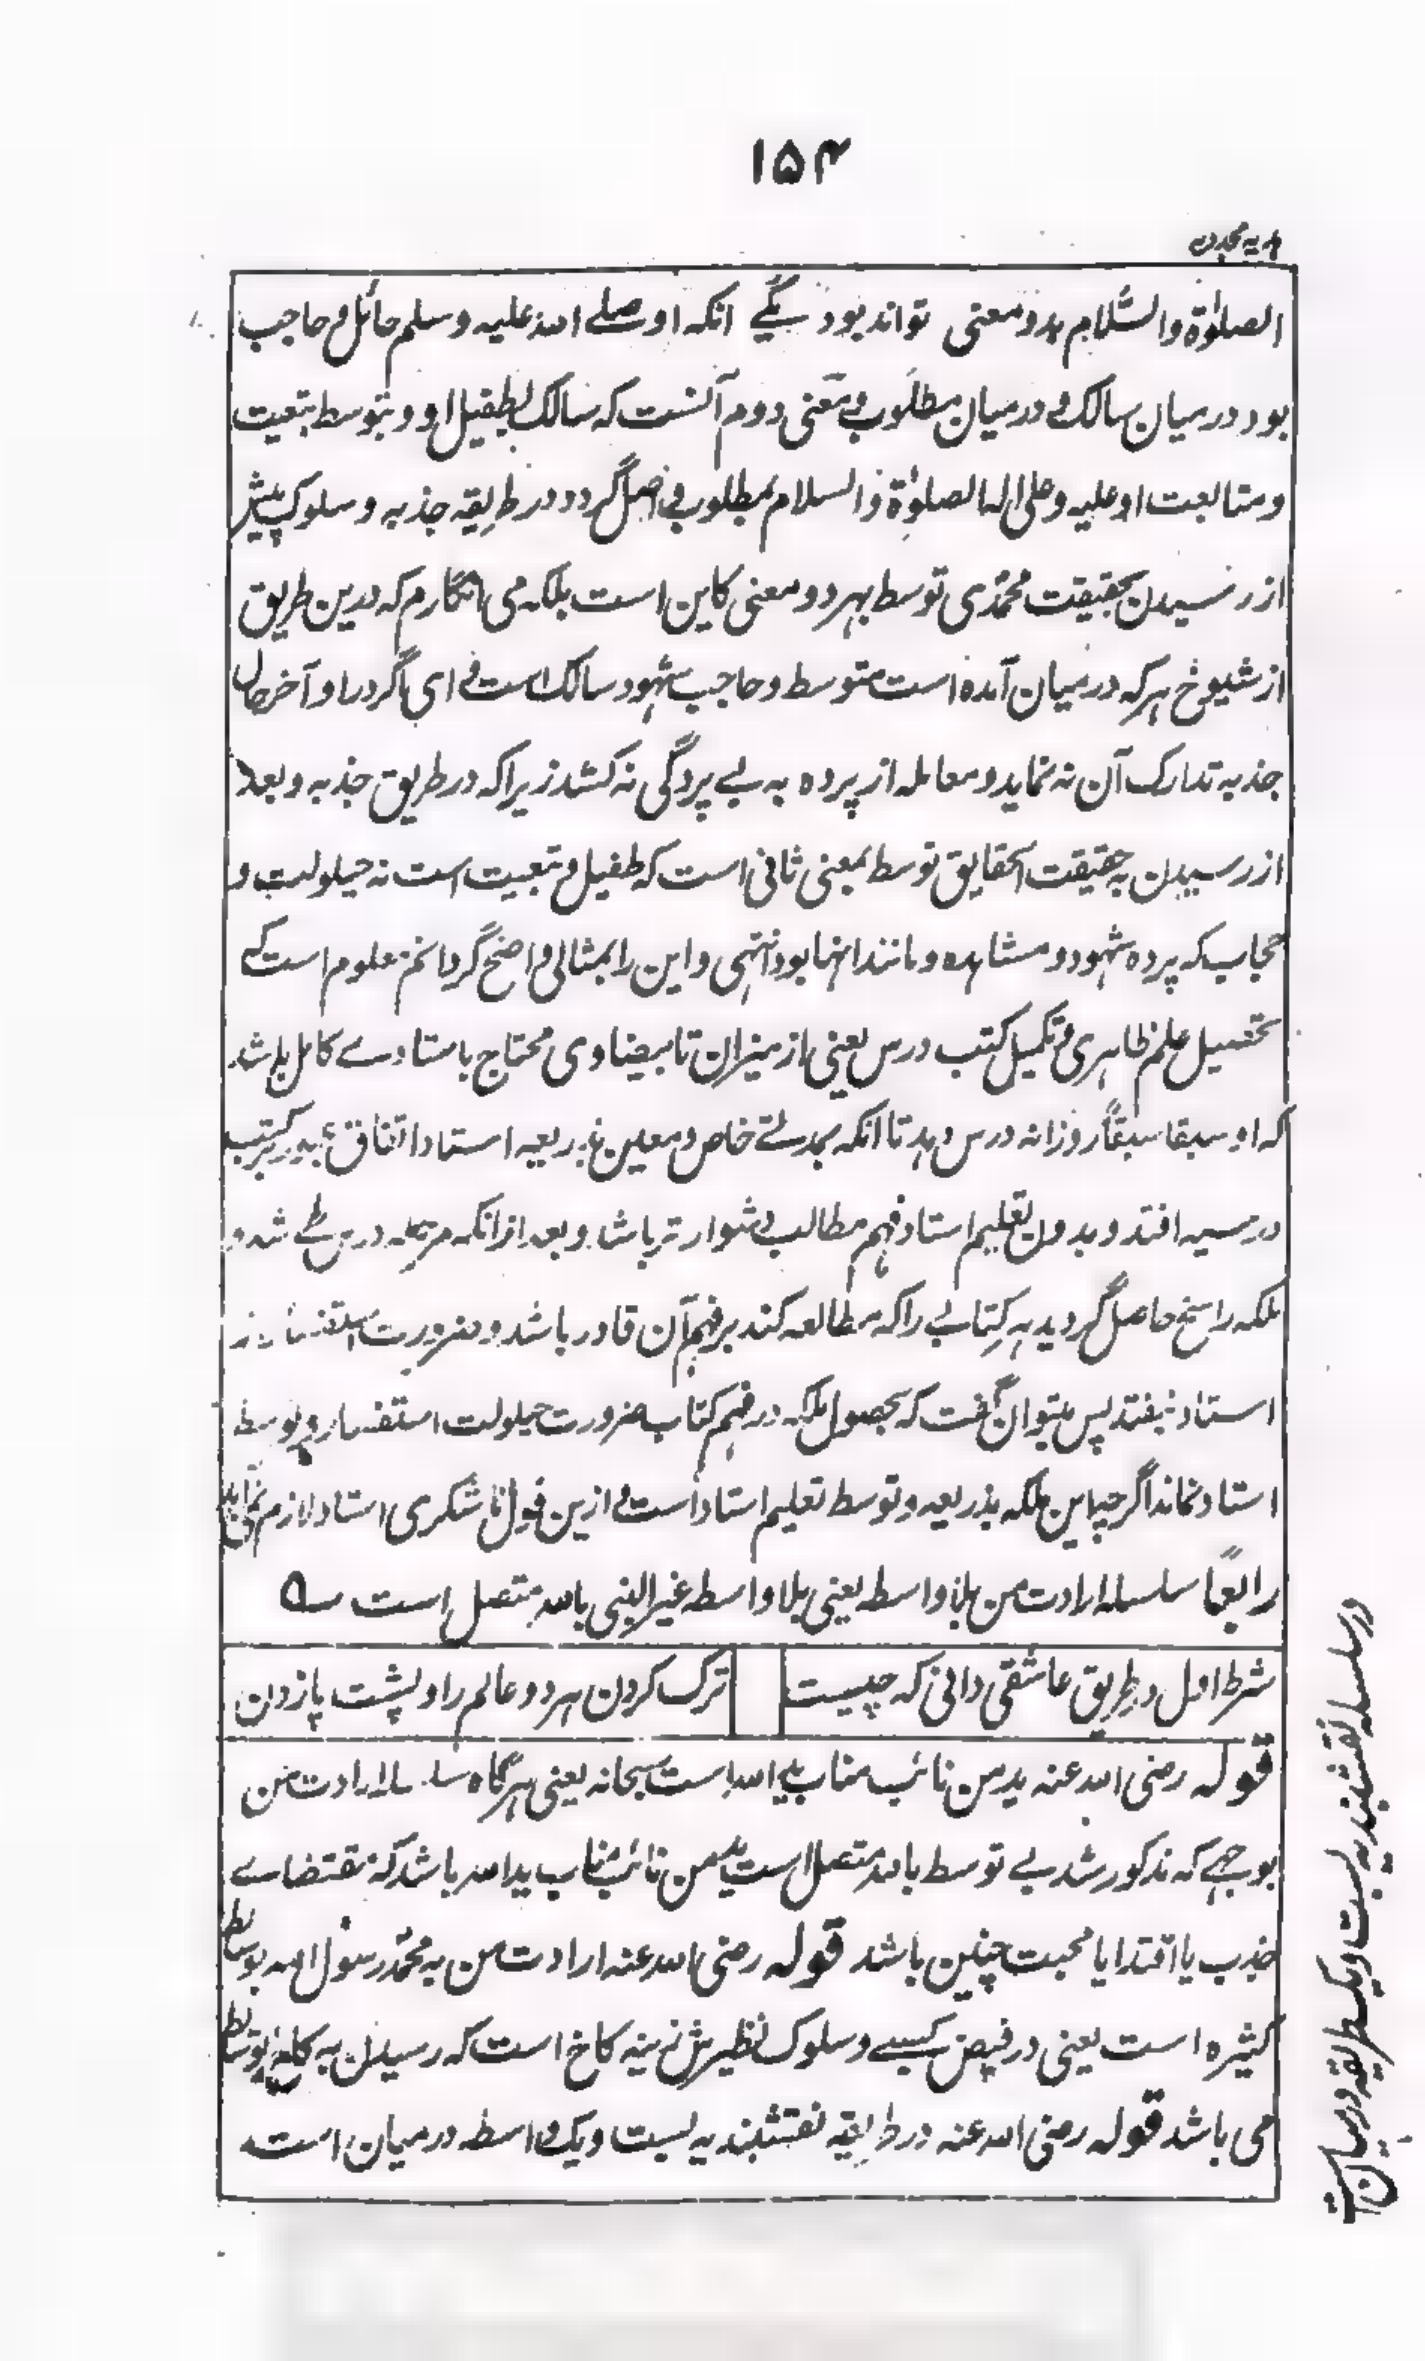 ۱۵۴
ہدیہ مجددیہ
الصلوٰۃ والسّلام بدو معنی تواند بود یکے انکہ او صلے اللہ علیہ وسلم حائل و حاجب
بود درمیان سالک و درمیان مطلوب و معنی دوم آنست کہ سالک بطفیل او و بتوسط تبعیت
و متابعت او علیہ و علی الہ الصلوٰۃ والسلام بمطلوب واصل گردد در طریقہ جذبہ و سلوک پیش
از رسیدن بحقیقت محمّدی توسط بہر دو معنی کاین است بلکہ می انگارم کہ درین طریق
از شیوخ ہر کہ درمیان آمدہ است متوسط و حاجب شہود سالک است وای اگر در او آخر حال
جذبہ تدارک آن نہ نماید و معاملہ از پردہ بہ بے پردگی نہ کشد زیرا کہ در طریق جذبہ و بعد
از رسیدن بہ حقیقت الحقایق توسط بمعنی ثانی است کہ طفیل و تبعیت است نہ حیلولت و
حجاب کہ پردہ شہود و مشاہدہ و مانند انہا بود انتہی و این را بمثالی واضح گردانم معلوم است کہ
تحصیل علم ظاہری و تکمیل کتب درس یعنی از میزان تا بیضاوی محتاج باستادے کامل باشد
کہ او سبقا سبقاً روزانہ درس دہد تا انکہ بمدتے خاص و معین بذریعہ استاد اتفاق بر کتب
درسیہ افتد و بدون تعلیم استاد فہم مطالب دشوار تر باشد و بعد از انکہ مرتبہ درس طے شد و
ملکہ راسخ حاصل گردید ہر کتابے را کہ مطالعہ کند بر فہم آن قادر باشد و ضرورت استفسار از
استاد نیفتد پس میتوان گفت کہ بحصول ملکہ در فہم کتاب ضرورت حیلولت استفسار و توسط
استاد نماند اگرچہ این ملکہ بذریعہ و توسط تعلیم استاد است و ازین قول ناشکری استاد لازم نمی آید
رابعًا سلسلہ ارادت من بلا واسطہ یعنی بلا واسطہ غیر النبی باللہ متصل است ؎
شرط اول در طریق عاشقی دانی کہ چیست ترک کردن ہر دو عالم را و پشت پا زدن
قولہ رضی اللہ عنہ ید من نائب مناب ید اللہ است سبحانہ یعنی ہرگاہ سلسلہ ارادت من
بوجہے کہ مذکور شد بے توسط باللہ متصل است ید من نائب مناب ید اللہ باشد کہ مقتضاے
جذب یا اقتدا یا محبت چنین باشد قولہ رضی اللہ عنہ ارادت من بہ محمّد رسول اللہ بوسائط
کثیرہ است یعنی در فیض کسبی و سلوک نظیرش زینہ کاخ است کہ رسیدن بہ کاخ بوسائط
می باشد قولہ رضی اللہ عنہ در طریقہ نقشبندیہ بست و یک واسطہ درمیان است
در سلسلہ نقشبندیہ بست و یک طریقہ درمیان است